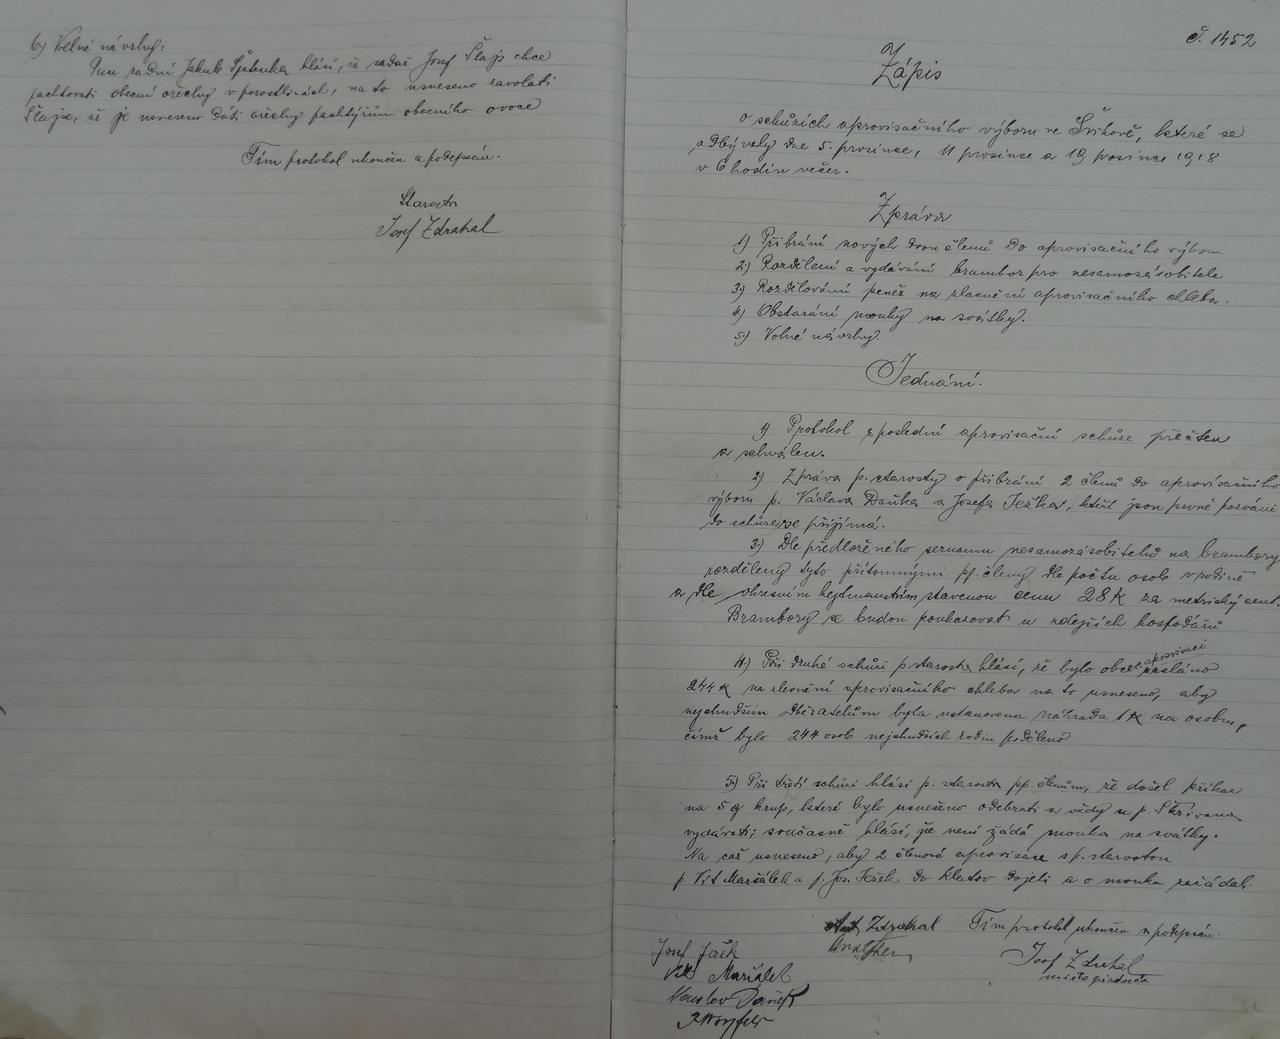 6) Volné návrhy:
Pan radní Jakub Špetenka hlásí, že Josef Šlajs chce
pachtovati obecní ořechy v porostlinách, na to usneseno zavolati
Šlajse, že je usneseno dáti ořechy pachtýřům obecního ovoce
Tím protokol ukončen a podepsán.
Starosta
Josef Zdrahal
Č. 1452
Zápis
o schůzích aprovisačního výboru ve Švihově, které se
odbývaly dne 5. prosince, 11 prosince a 19 prosince 1918
v 6 hodin večer.
Zpráva
1) Přibrání nových dvou členů do aprovisačního výboru
2) Rozdělení a vydávání brambor pro nesamozásobitele
3) Rozdělování peněz na zlacnění aprovisačního chleba.
4) Obstarání mouky na svátky.
5) Volné návrhy.
Jednání.
1) Protokol z poslední aprovisační schůze přečten
a schválen.
2) Zpráva p. starosty o přibrání 2 členů do aprovisačního
výboru p. Václava Daňka a Josefa Ježka, kteří jsou prvně pozváni
do schůze, se přijímá.
3) Dle předloženého seznamu nesamozásobitelů na brambory
rozděleny tyto přítomnými pp. členy dle počtu osob v rodině
a dle okresním hejtmanstvím stavenou cenu 28 K za metrický cent.
Brambory se budou poukazovat u zdejších hospodářů
4) Při druhé schůzi p starosta hlásí, že bylo obec. aprovisaci zasláno
244 K na zlevnění aprovisačního chleba na to usneseno, aby
nejchudším odběratelům byla ustanovena náhrada 1 K na osobu,
čímž bylo 244 osob nejchudších rodin poděleno
5) Při třetí schůzi hlásí p. starosta pp. členům, že došel příkaz
na 5 q krup, které bylo usnešeno odebrati a vždy u p Skřivana
vydávati; současně hlásí, že není žádá mouka na svátky.
Na což usneseno, aby 2 členové aprovisace s p. starostou
p. Vít Maršálek a p. Jos. Ježek do Klatov dojeli a o mouku zažádali.
Ant. Zdrahal Tím protokol ukončen a podepsán.
Josef Ježek
Josef Zdrahal
Vít Maršálek
místopředseda
Daněk